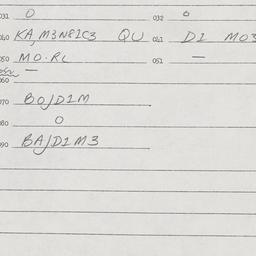 031 O 032 o
040 KA, M3N8IC3 QU 041 D1 MO3
050 MO.RL 051 —
060 —
070 BO/D1M
080 O
090 BA/D1M3